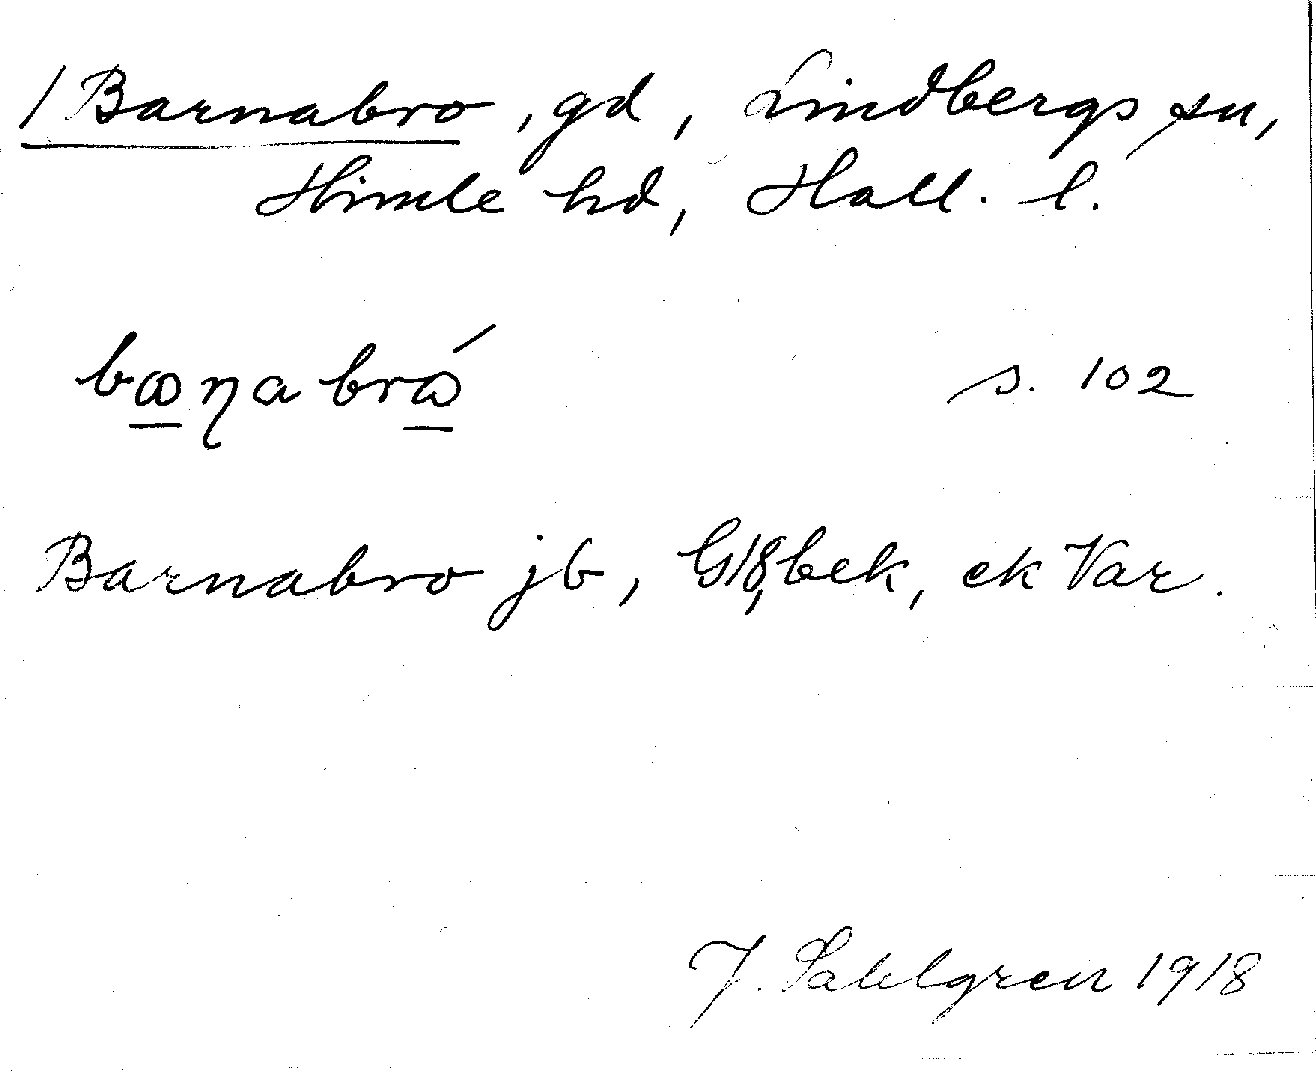 / Barnabro, gd, Lindbergs sn,
Himle hd, Hall. l.
s. 102
Barnabro jb, G18, bek, ek Var.
J. Sahlgren 1918